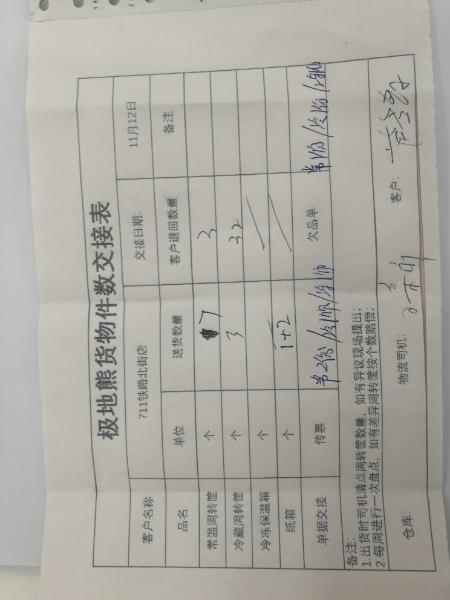 极地熊货物件数交接表
客户名称 711铁路北街店 交接日期: 11月12日
品名 单位 送货数量 客户退回数量 备注
常温周转筐 个 7 3
冷藏周转筐 个 3 32
冷冻保温箱 个
纸箱 个 1+2
单据交接 传票 欠品单
备注:
1.出货时司机清点周转筐数量,如有异议现场提出;
2.每周进行一次盘点,如有差异周转筐按个数赔偿;
仓库: 物流司机: 客户: